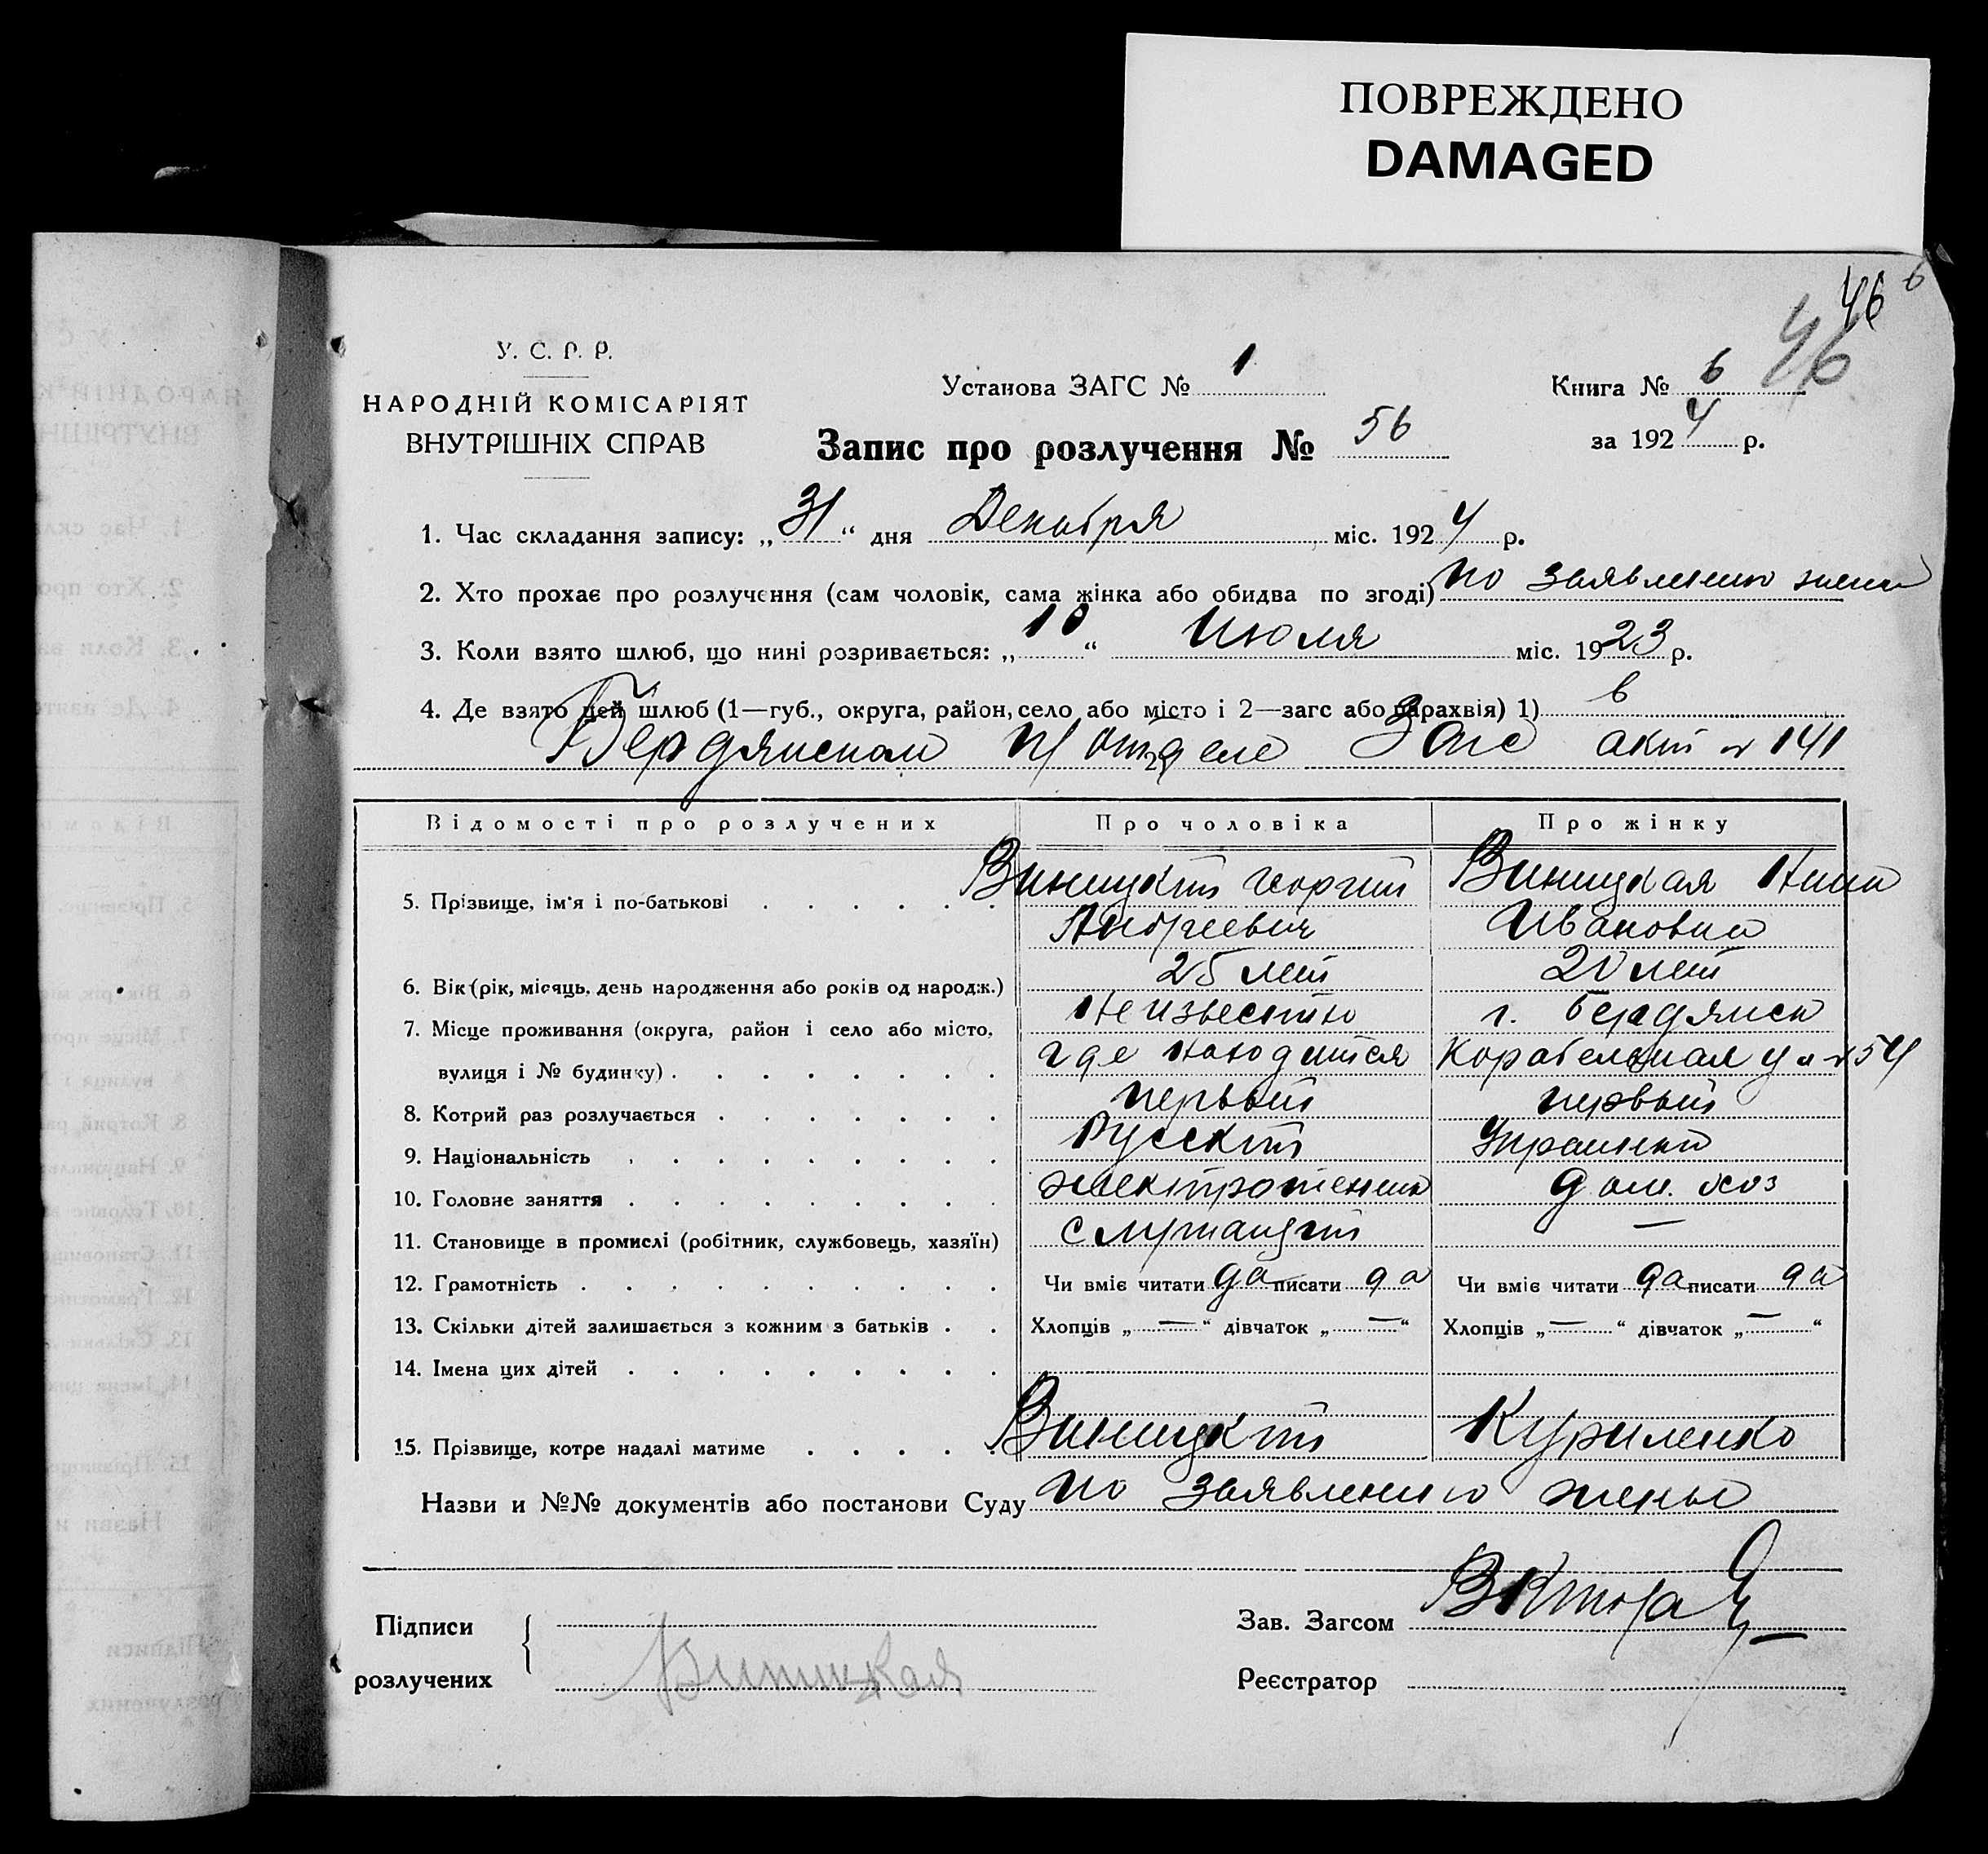 ПОВРЕЖДЕНО
DAMAGED
46 6
46
У. С. Р. Р.
НАРОДНІЙ КОМІСАРІЯТ
ВНУТРІШНІХ СПРАВ
Установа ЗАГС № 1
Книга № 6
Запис про розлучення № 56
за 1924 р.
1. Час складання запису: „31“ дня Декабря міс. 1924 р.
2. Хто прохає про розлучення (сам чоловік, сама жінка або обидва по згоді) по заявлению жени
3. Коли взято шлюб, що нині розривається: „10“ Июля міс. 1923 р.
4. Де взято цей шлюб (1—губ., округа, район, село або місто і 2—загс або парахвія) 1) в
Бердянском п/отделе Загс акт № 141
Відомості про розлучених Про чоловіка Про жінку
5. Прізвище, ім'я і по-батькові Виницкий Георгий Виницкая Нина
Андреевич Ивановна
6. Вік (рік, місяць, день народження або років од народж.) 25 лет 20 лет
7. Місце проживання (округа, район і село або місто, Неизвестно г. Бердянск
вулиця і № будинку) где находится Корабельная ул № 54
8. Котрий раз розлучається первый первый
9. Національність Русский Украинка
10. Головне заняття электротехник дом. хоз
11. Становище в промислі (робітник, службовець, хазяїн) служащий —
12. Грамотність Чи вміє читати да писати да Чи вміє читати да писати да
13. Скільки дітей залишається з кожним з батьків Хлопців „—“ дівчаток „—“ Хлопців „—“ дівчаток „—“
14. Імена цих дітей
15. Прізвище, котре надалі матиме Виницкий Куриленко
Назви и №№ документів або постанови Суду по заявлению жены
Підписи
розлучених Виницкая
Зав. Загсом
Реєстратор